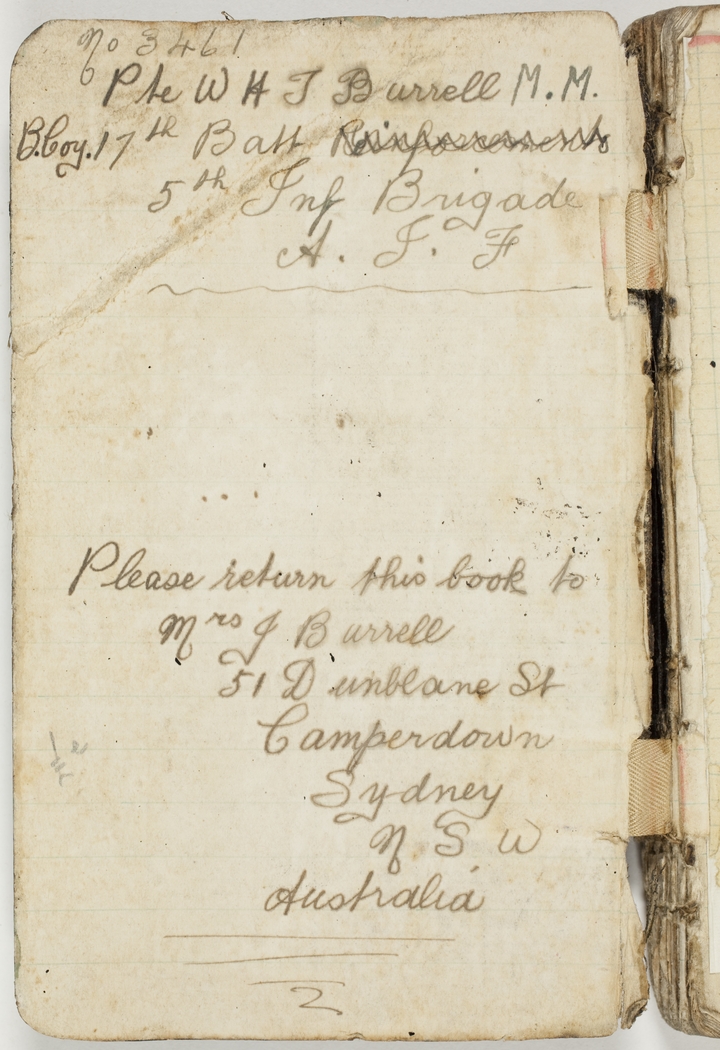 No 3461
Pte W H J Burrell M.M.
B.Coy. 17th Batt Reinforcements
5th Inf Brigade
A. I. F
Please return this book to
Mrs J Burrell
51 Dunblane St
Camperdown
Sydney
N S W
Australia